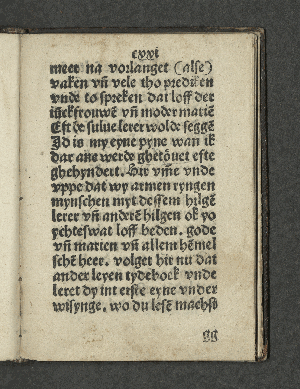 cxxi
meer na vorlanget (alse)
vakẽ vñ vele tho prediken
vnde to spreken dat loff der
iũckfrouwẽ vñ moder mariẽ
Est de sulue lerer wolde seggẽ
Id is my eyne pyne wan ik
dar ane werde ghetövet efte
ghehyndert. Hir vm̃e vnde
vppe dat wy armen ryngen
mynschen myt dessem hilgẽ
lerer vñ anderẽ hilgen ok yo
ychteswat loff beden. gode
vñ marien vñ allem hẽmel
schẽ heer. volget hir nu dat
ander leyen tydebock vnde
leret dy int erste eyne vnder
wisynge. wo du lesẽ machst
gg